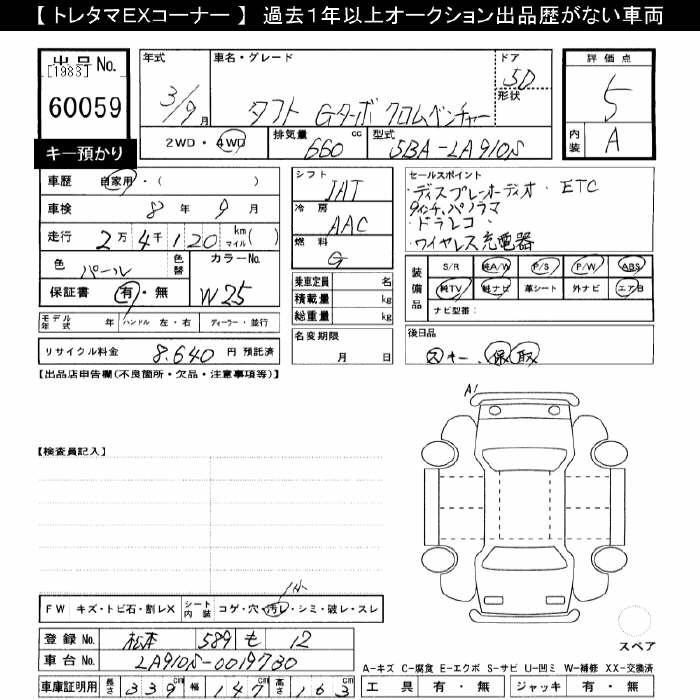 【 トレタマEXコーナー 】 過去1年以上オークション出品歴がない車両
出品No.
[1983]
60059
キー預かり
年式
3/9月
車名・グレード
タフト Gターボ クロムベンチャー
ドア
5D
形状
2WD・4WD
排気量
660 cc
型式
5BA-LA910S
評価点
5
内装
A
車歴 自家用・( )
車検 8年 9月
走行 2万4千120 km マイル( )
色 パール
色替
カラーNo.
W25
保証書 有・無
モデル年式 年 ハンドル 左・右 ディーラー・並行
リサイクル料金 8,640 円 預託済
シフト
IAT
冷房
AAC
燃料
G
乗車定員 名
積載量 kg
総重量 kg
名変期限
月 日
セールスポイント
・ディスプレーオーディオ・ETC
9インチ、パノラマ
・ドラレコ、
・ワイヤレス充電器
装備品
S/R 純A/W P/S P/W ABS
純TV 純ナビ 革シート 外ナビ エアB
ナビ型番:
後日品
スキー、保、取
【出品店申告欄(不良箇所・欠品・注意事項等)】
【検査員記入】
A1
FW キズ・トビ石・割レX
シート内装
コゲ・穴・汚レ・シミ・破レ・スレ
登録No. 松本 589 も 12
車台No. LA910S-0019730
車庫証明用 長さ 339cm 幅 147cm 高さ 163cm
スペア
A-キズ C-腐食 E-エクボ S-サビ U-凹ミ W-補修 XX-交換済
工具 有・無 ジャッキ 有・無